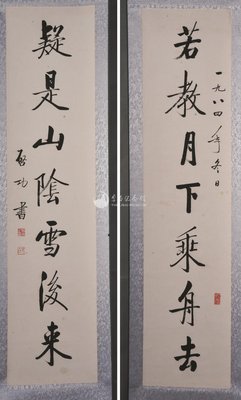 若教月下乘舟去
一九八四年冬日
疑是山陰雪後来
启功書